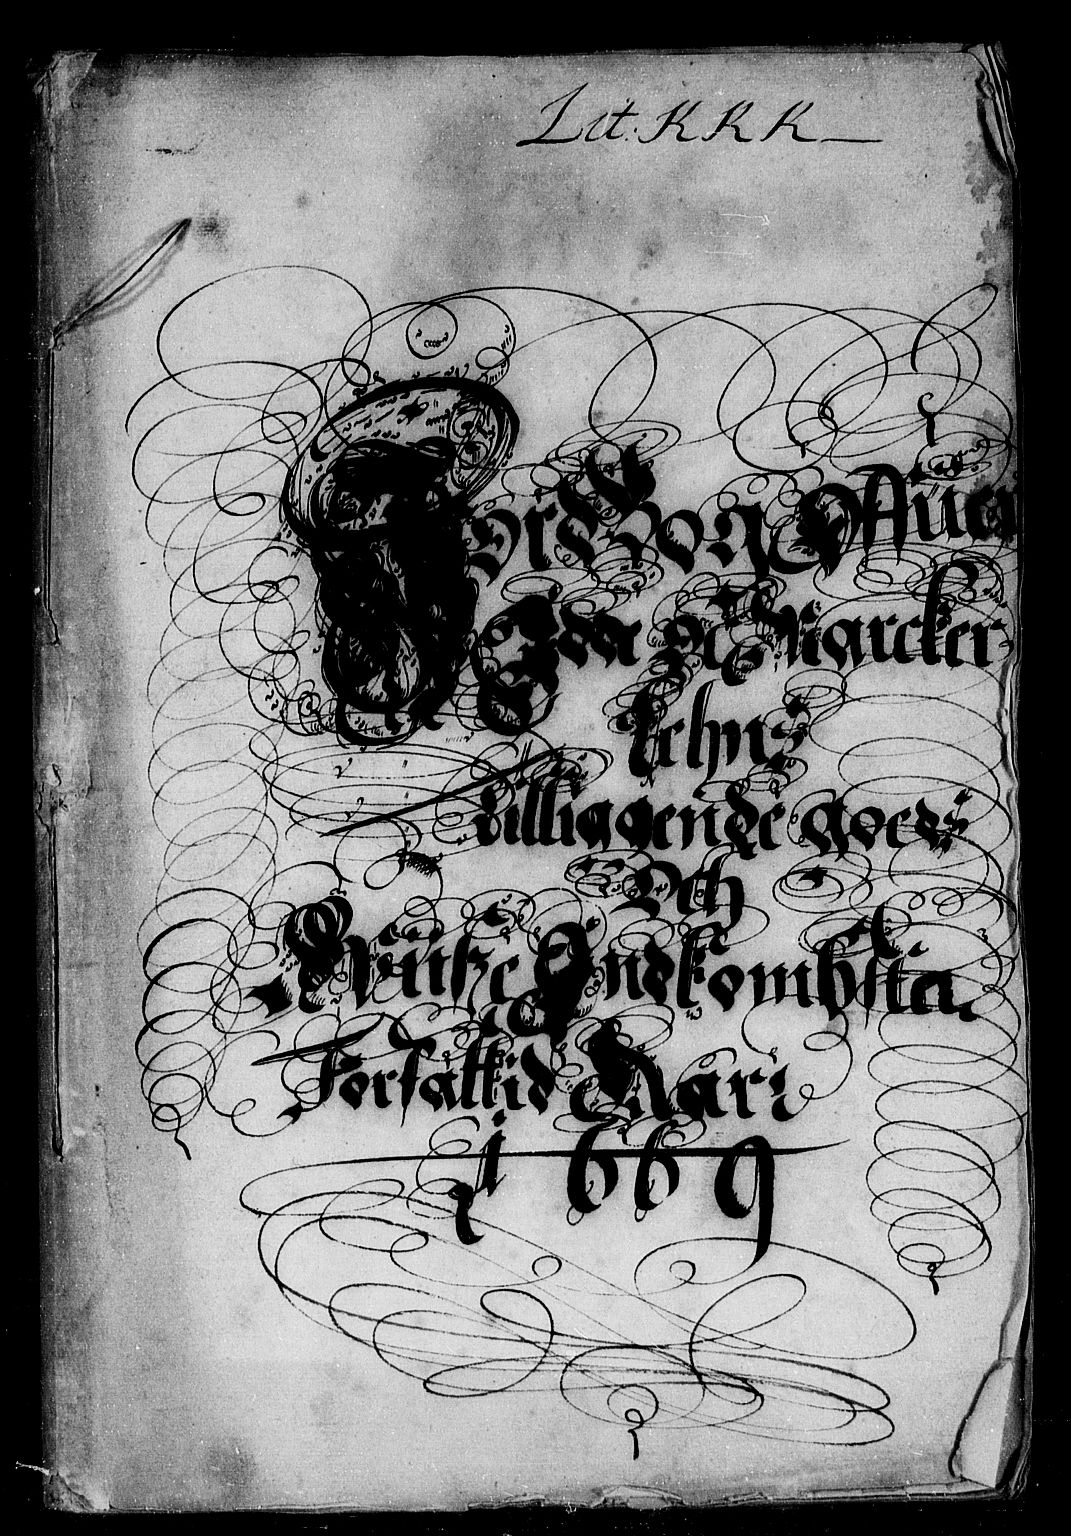 Lit: KKK
Jord Bog Offuer
Idde oc Marcker
Lehns
tilliggende goeds
Och
Wiße Indkombster
Forfattid Aari
1669